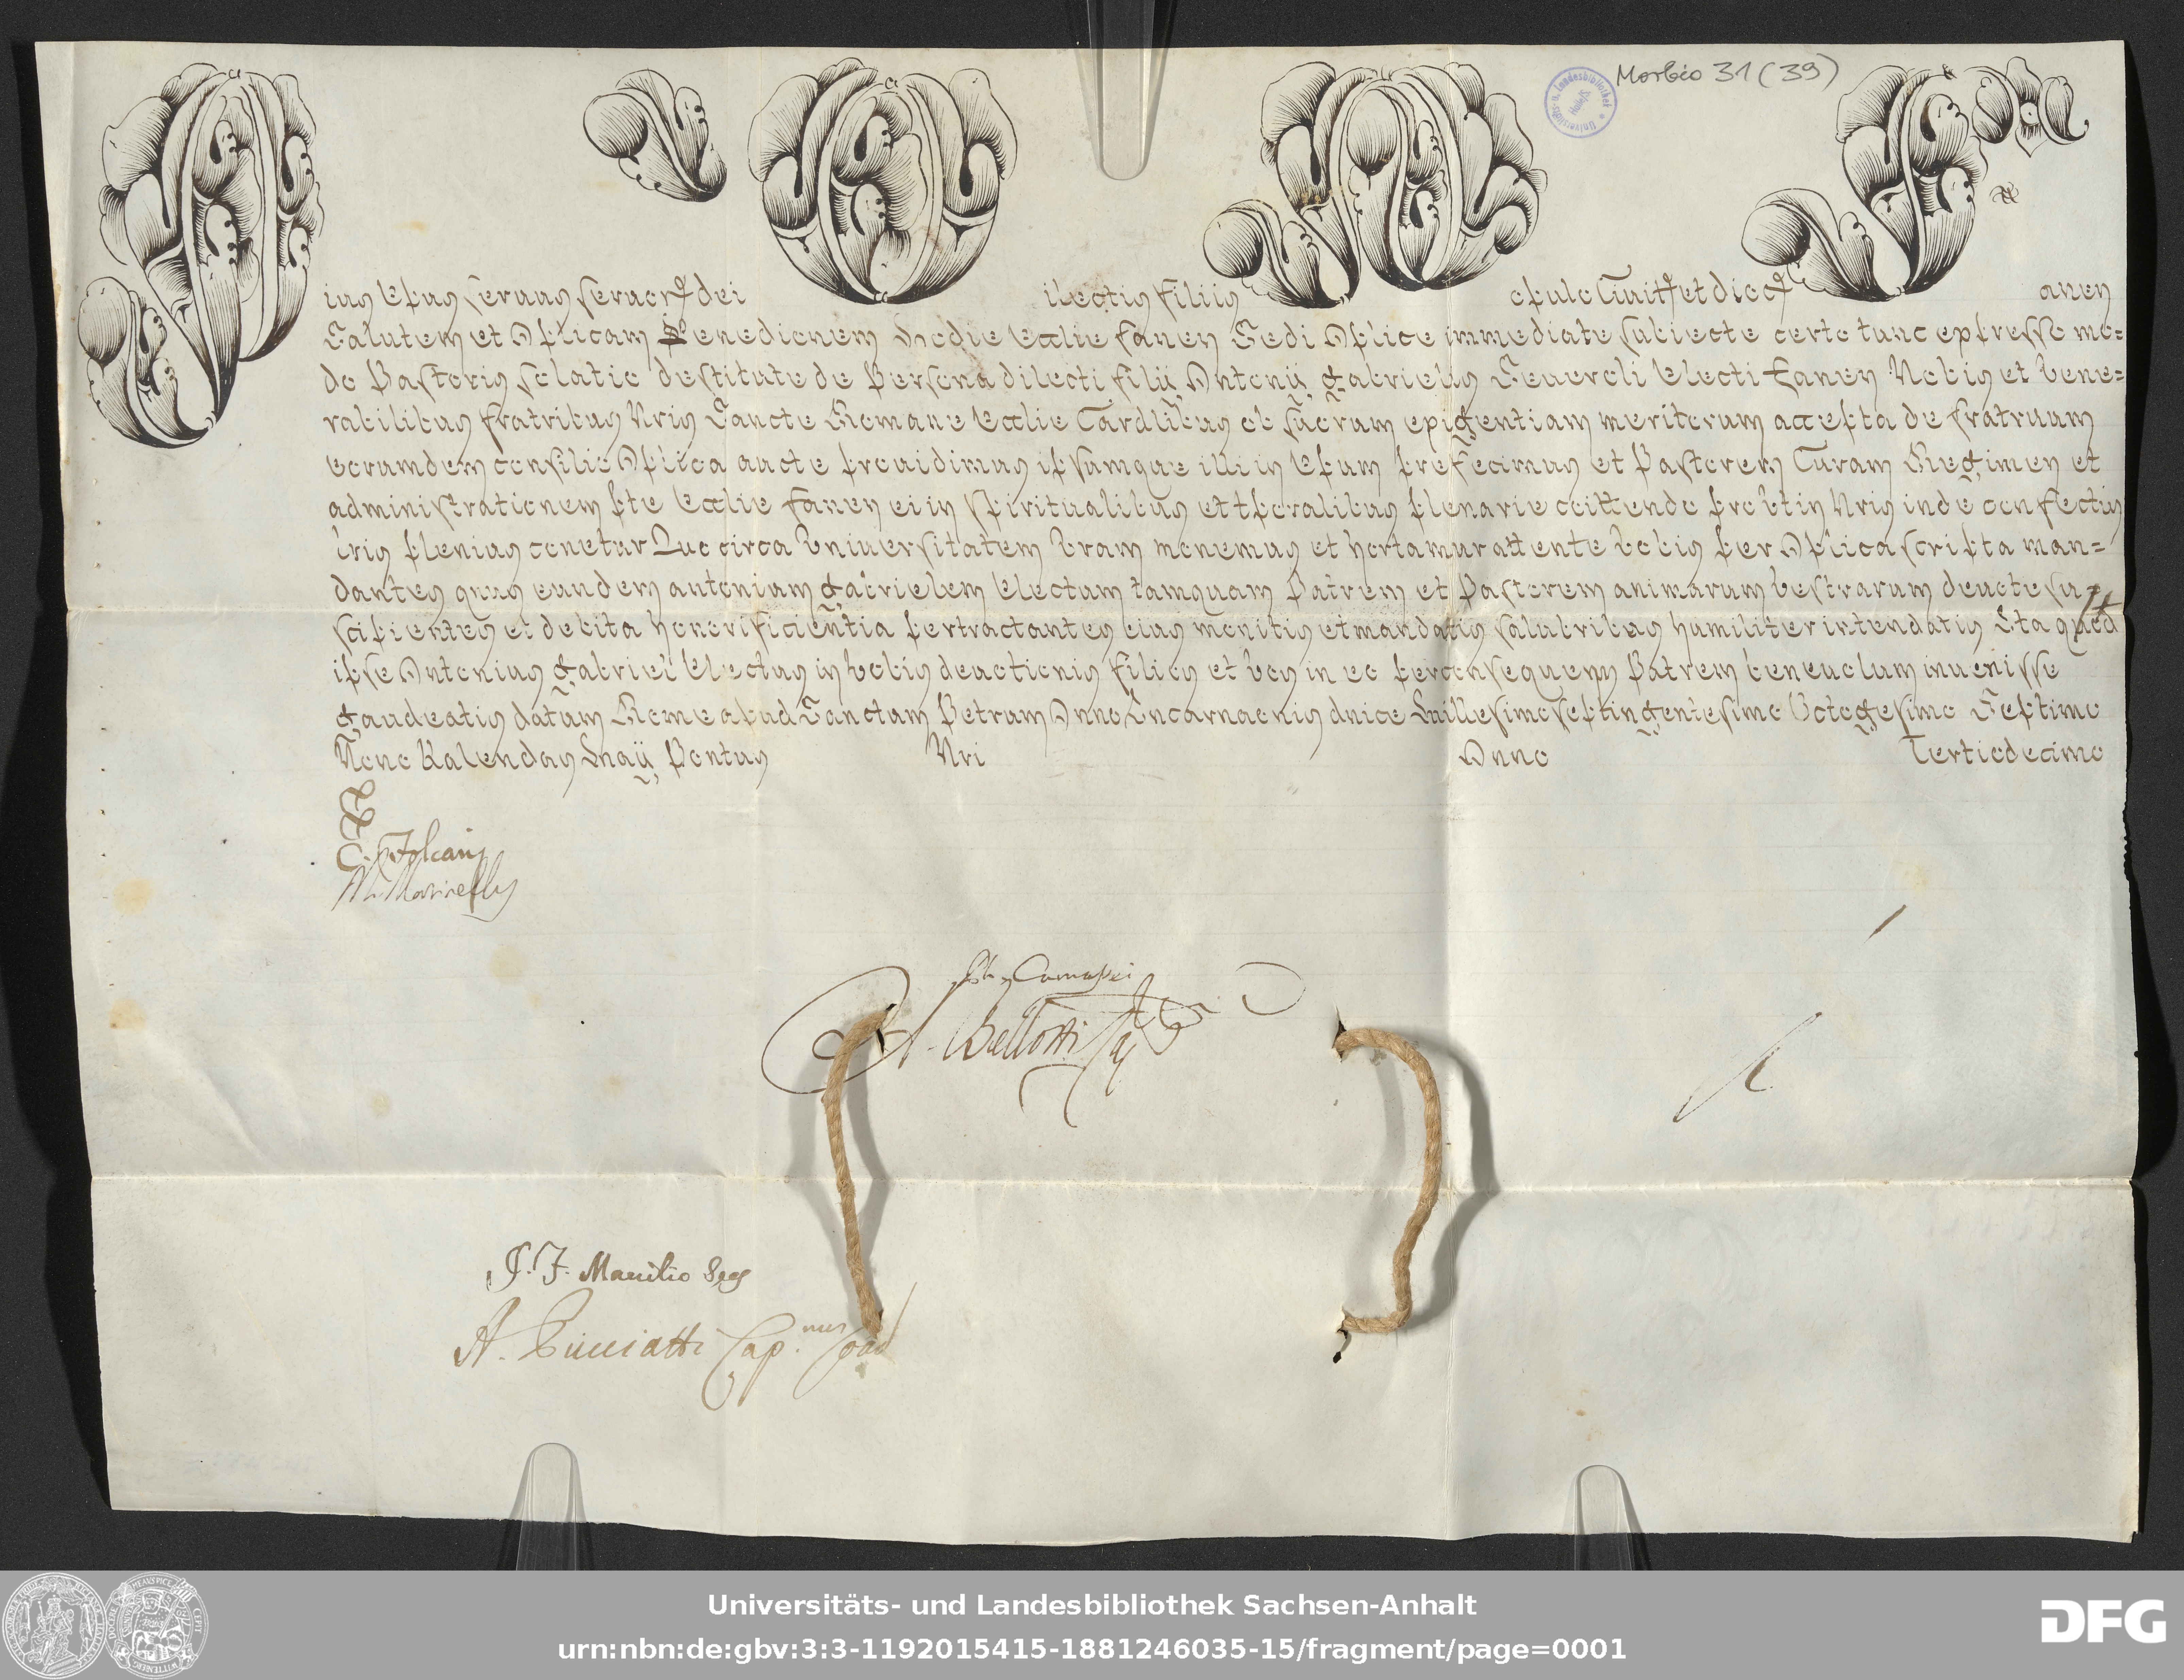 Morbio 31 (39)
Pius Epus Servus Servor dei Dilectis Filiis Populo Civittis et dioc Fanen
Salutem et Aplicam Benedictionem Hodie Ecclie Fanen Sedi Aplice immediate subiecte certo tunc expresso mo=
do Pastoris solatio destitute de Persona dilecti filii Antonii Gabrielis Severoli Electi Fanen Nobis et Vene=
rabilibus fratribus Nris Sancte Romane Ecclie Cardlibus ob suorum exigentiam meritorum accepta de fratruum
eorumdem consilio Aplica aucte providimus ipsumque illi in Epum prefecimus et Pastorem Curam Regimen et
administrationem pte Ecclie Fanen ei in spiritualibus et tporalibus plenarie coittendo prout in Nris inde confectis
lris plenius conetur Quo circa Universitatem Vram monemus et hortamur attente Vobis per Aplica scripta man=
dantes qtus eundem Antonium Gabrielem Electum tamquam Patrem et Pastorem animarum vestrarum devote su=
scipientes et debita honorificientia pertractantes eius monitis et mandatis salubribus humiliter intendatis Ita quod
ipse Antonius Gabriel Electus in Vobis devotionis filios et Vos in eo per consequens Patrem benevolum invenisse
gaudeatis datum Rome apud Sanctam Petrum Anno Incarnaonis dnice Millesimo septingentesimo Octogesimo Septimo
Nono Kalendas Maii, Pontus Nri Anno Tertiodecimo
A. Bellotti
J. F. Mauitio
Universitäts- und Landesbibliothek Sachsen-Anhalt
urn:nbn:de:gbv:3:3-1192015415-1881246035-15/fragment/page=0001
DFG